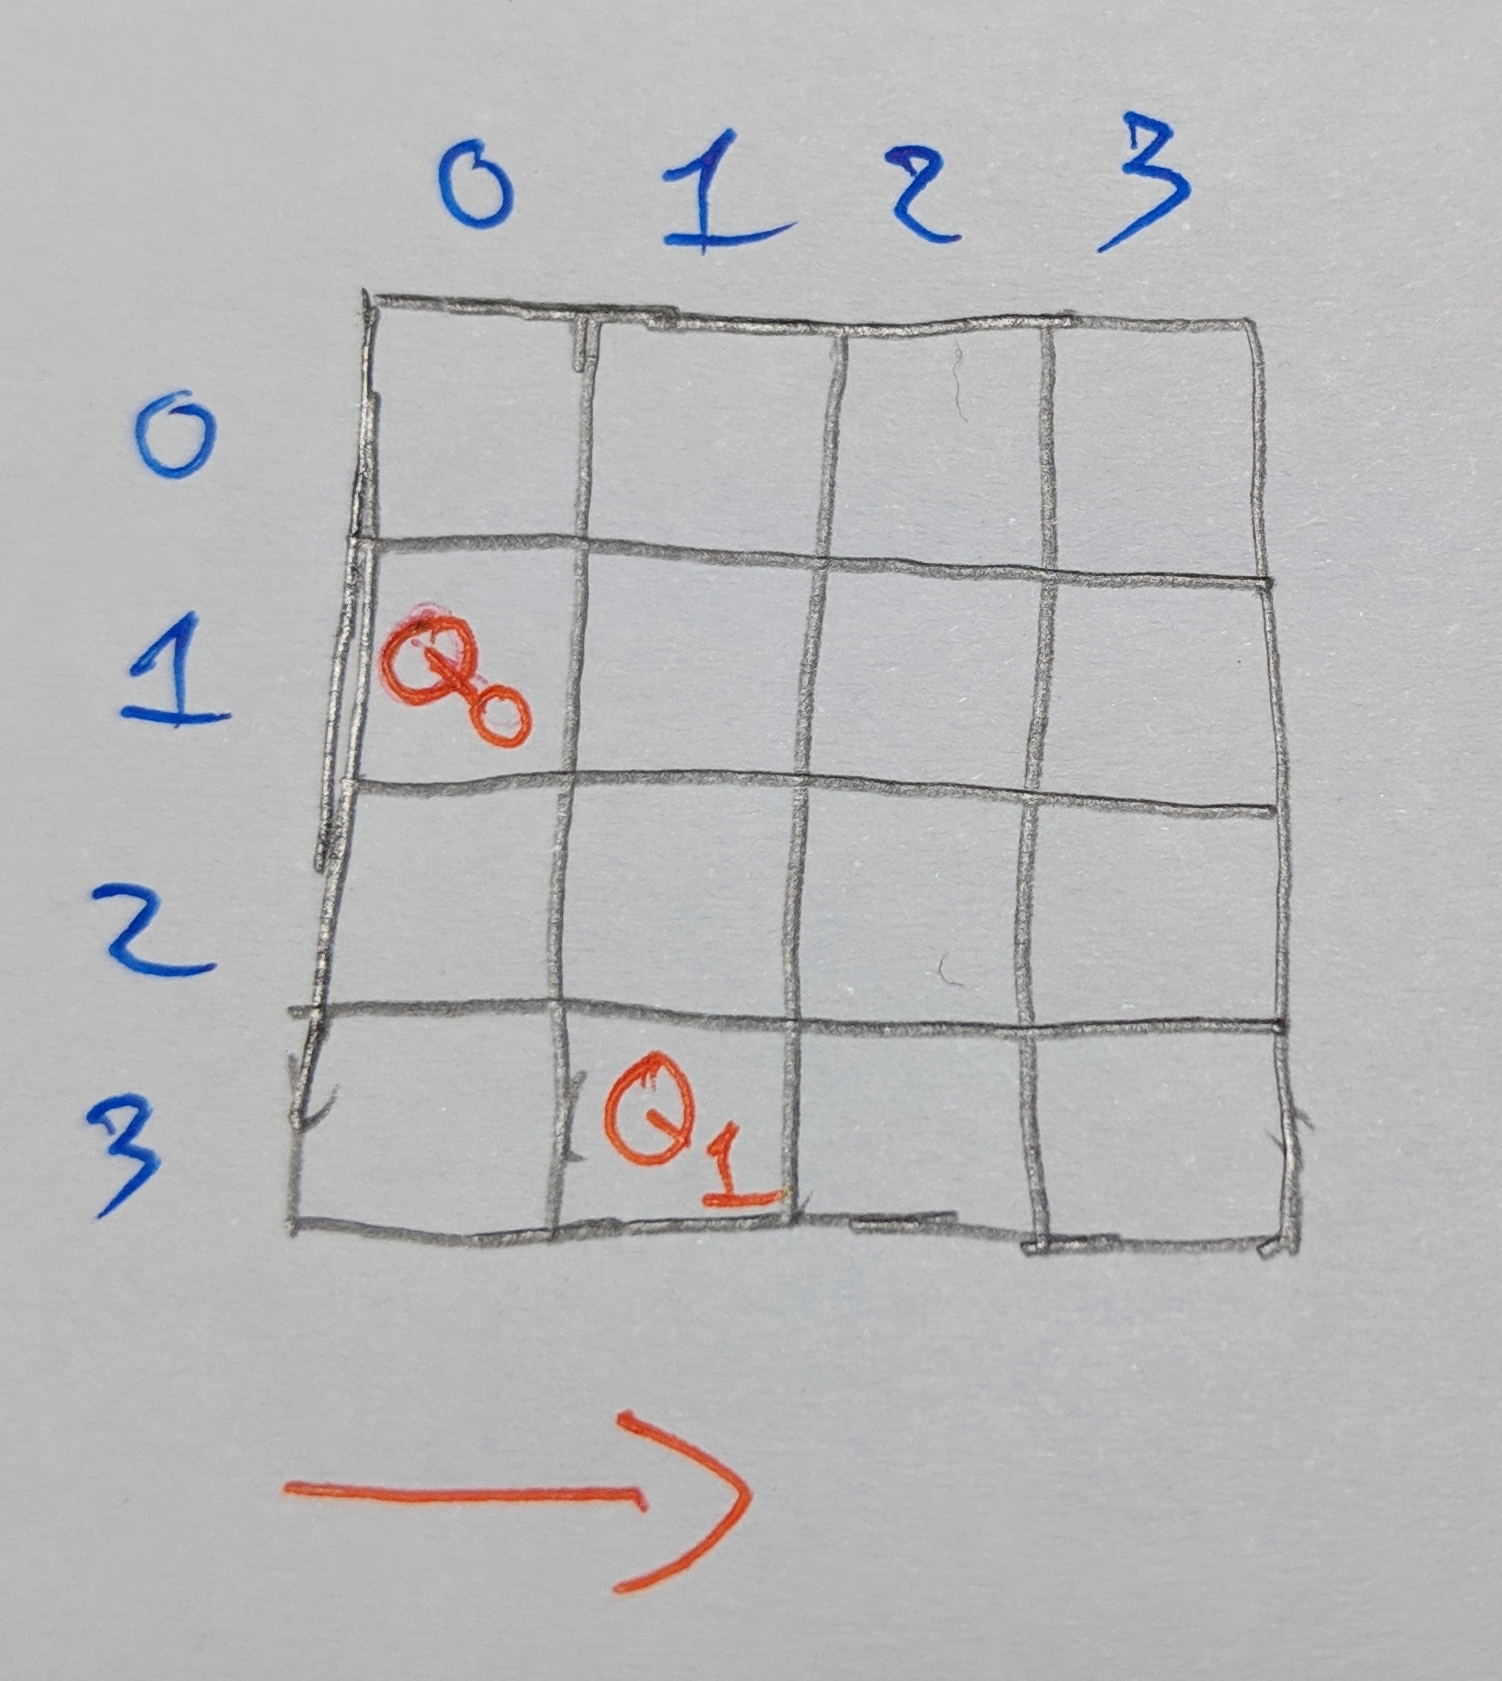 0 1 2 3
0
1 Q₀
2
3 Q₁